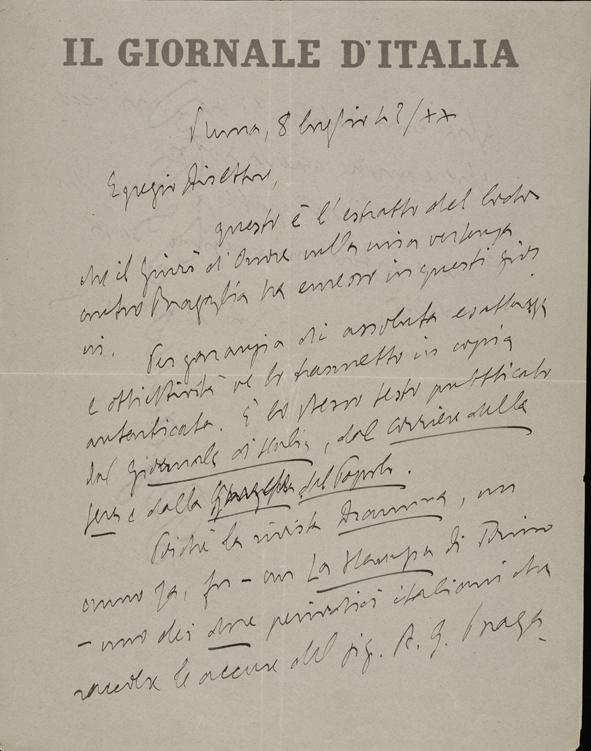 IL GIORNALE D'ITALIA
Roma, 8 luglio 42/XX
Egregio Direttore,
questo è l'estratto del lodo
che il Giurì d'Onore nella mia vertenza
contro Bragaglia ha emesso in questi gior
ni. Per garanzia di assoluta esattezza
e obiettività ve lo trasmetto in copia
autenticata. È lo stesso testo pubblicato
dal Giornale di Italia, dal Corriere della
Sera e dalla Gazzetta del Popolo.
Poiché la rivista Dramma, un
anno fa, fu – con La Stampa di Torino
– uno dei due periodici italiani che
raccolse le accuse del sig. A. G. Braga-